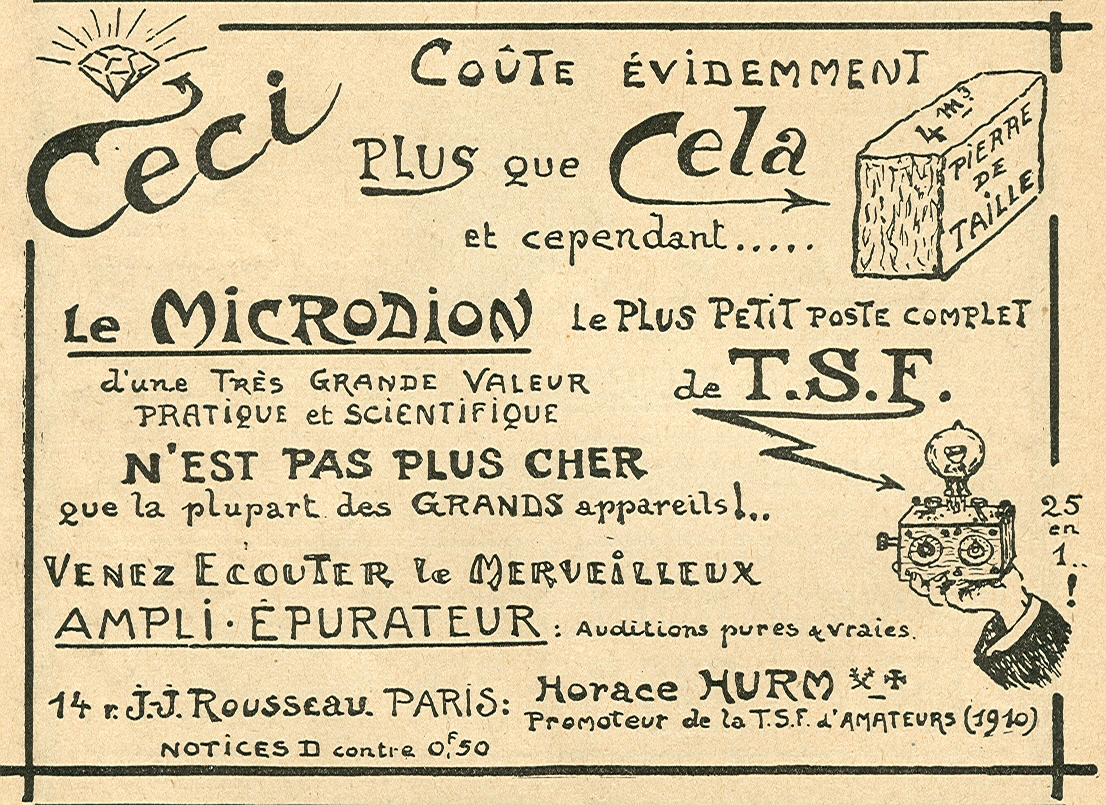 Ceci COÛTE ÉVIDEMMENT
PLUS que Cela
4 m³
PIERRE
DE
TAILLE
et cependant.....
Le MICRODION Le PLUS PETIT POSTE COMPLET
d'une TRÈS GRANDE VALEUR
PRATIQUE et SCIENTIFIQUE
de T.S.F.
N'EST PAS PLUS CHER
que la plupart des GRANDS appareils!..
25
en
1..
!
VENEZ ECOUTER le MERVEILLEUX
AMPLI·ÉPURATEUR : Auditions pures & vraies.
14 r. J.J. ROUSSEAU. PARIS: Horace HURM
Promoteur de la T.S.F. d'AMATEURS (1910)
NOTICES D contre 0,ᶠ50